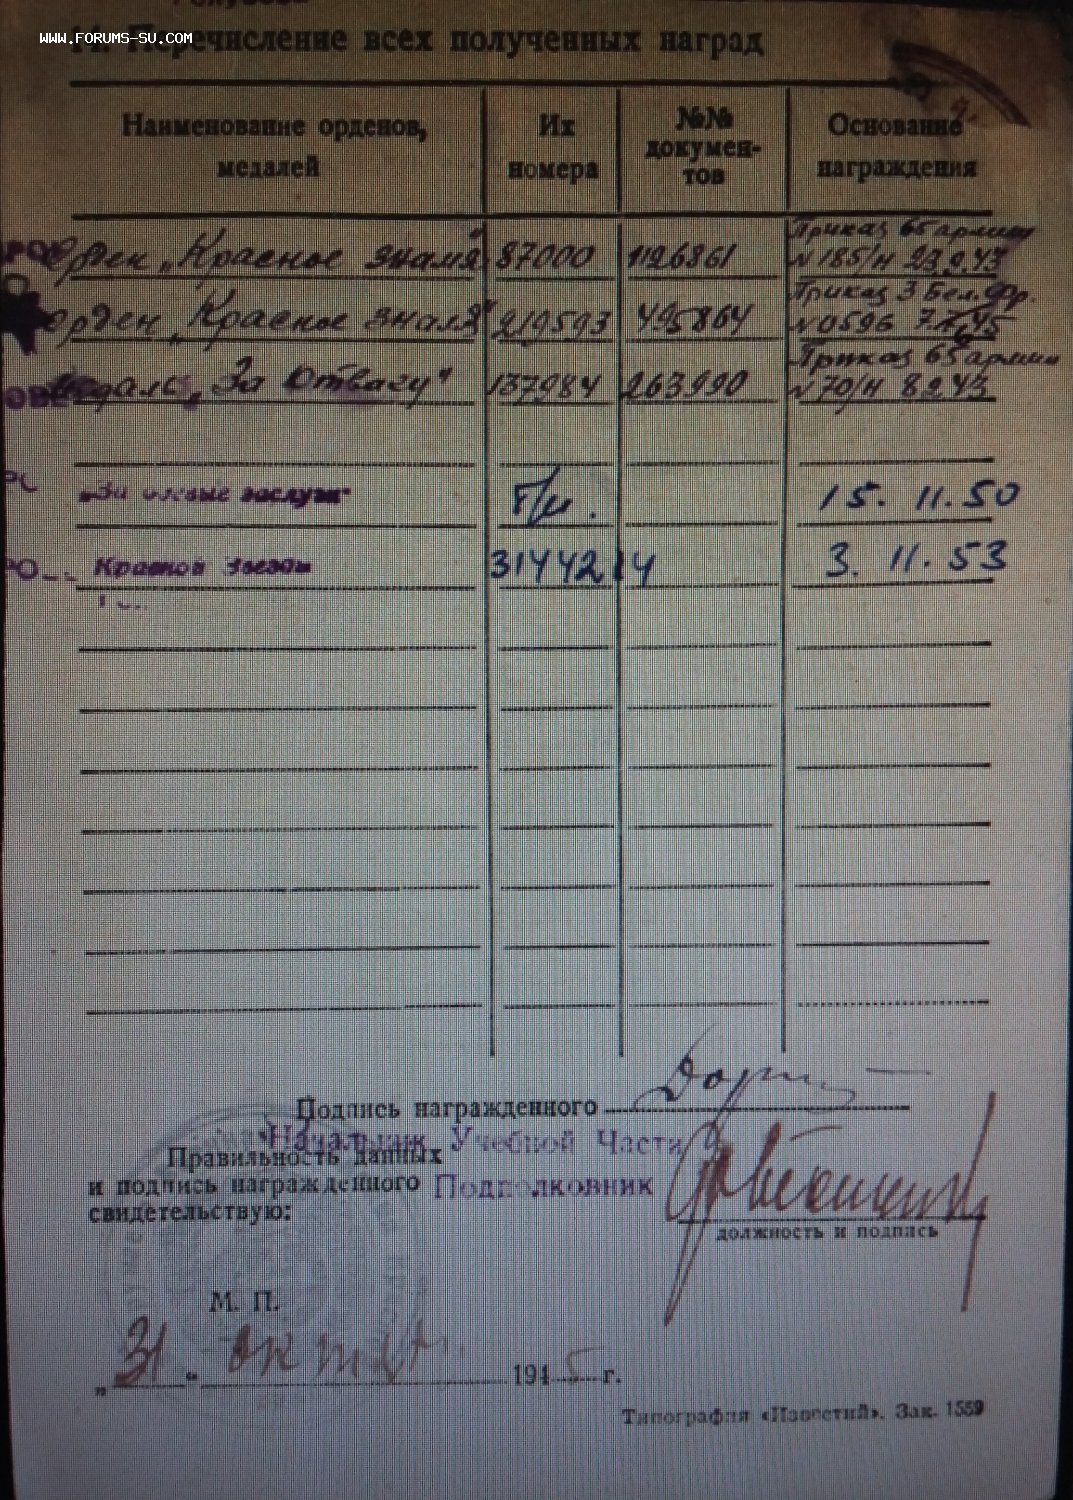 WWW.FORUMS-SU.COM
11. Перечисление всех полученных наград
Наименование орденов, медалей
Их номера
№№ докумен-тов
Основание награждения
Орден „Красное знамя" 87000 1126861 Приказ 65 армии №185/н 23.9.43
Орден „Красное знамя" 219593 495864 Приказ 3 Бел. Фр. №0596
Медаль „За Отвагу" 137984 263990 Приказ 65 армии №70/н 8.2.43
„За боевые заслуги" Б/н. 15. 11. 50
Красной Звезды 3144214 3. 11. 53
Подпись награжденного
Начальник Учебной Части
Правильность данных
и подпись награжденного Подполковник
свидетельствую:
должность и подпись
М. П.
„31" окт 1945 г.
Типография «Известий». Зак. 1559